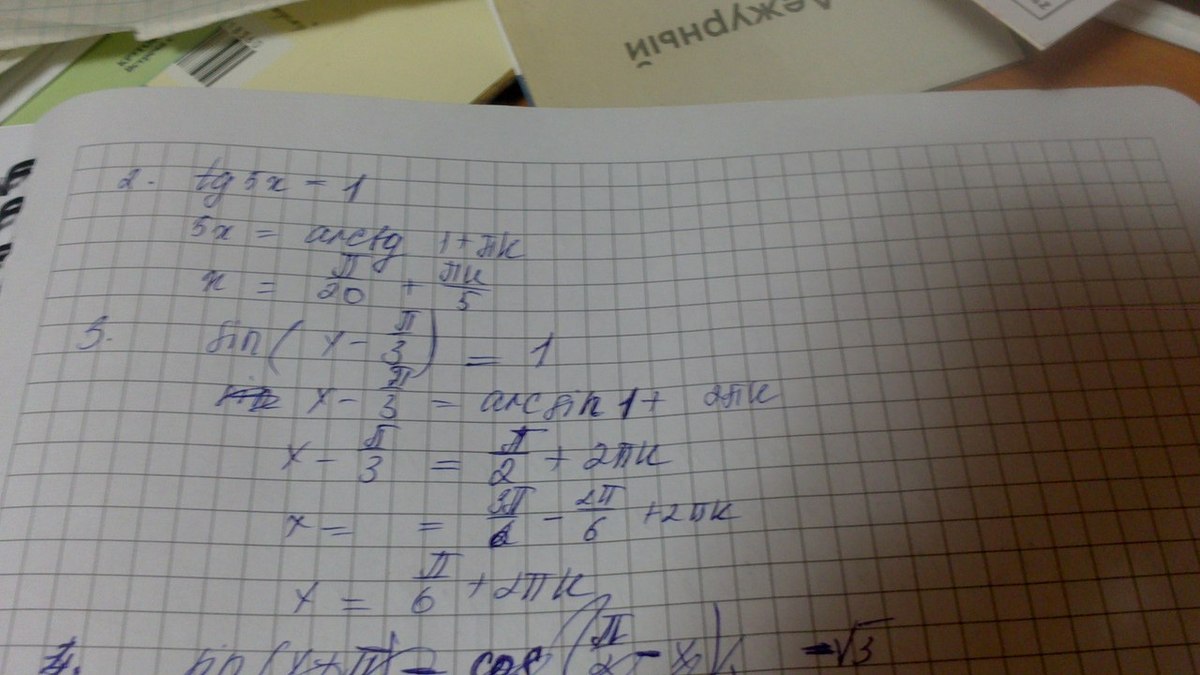 Дежурный
2. tg 5x = 1
5x = arctg 1 + πk
x = π/20 + πk/5
3. sin(x - π/3) = 1
x - π/3 = arcsin 1 + 2πk
x - π/3 = π/2 + 2πk
x = = 3π/6 - 2π/6 + 2πk
x = π/6 + 2πk
4. sin(x + π) - cos(π/2 - x) = √3